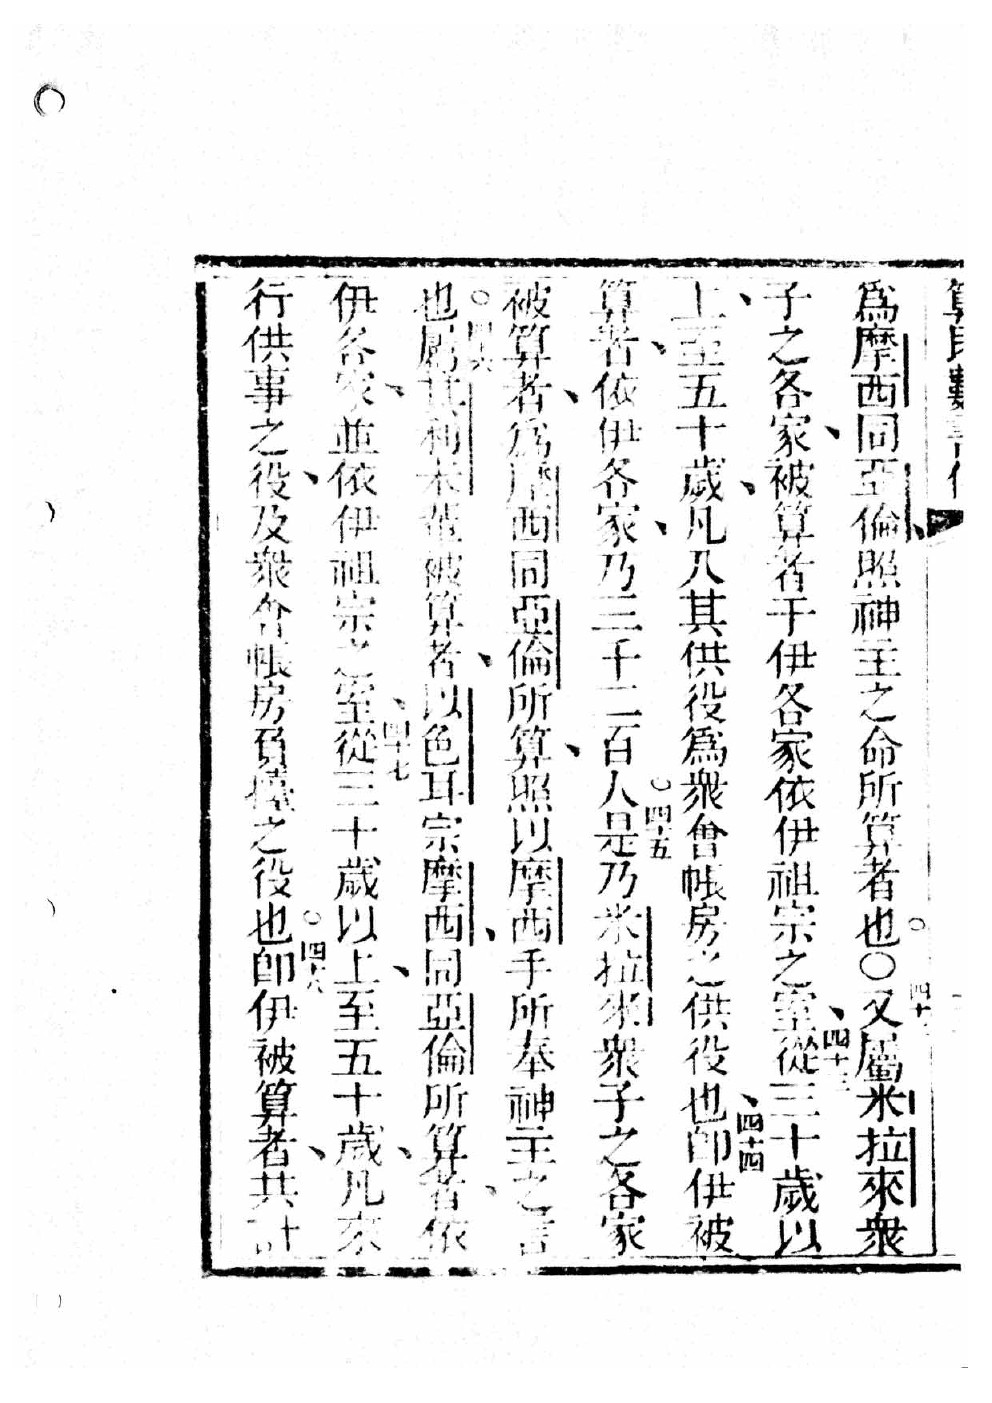 算民數書傳
爲摩西同亞倫照神主之命所算者也○四十二又屬米拉來衆
子之各家被算者于伊各家依伊祖宗之室四十三從三十歲以
上至五十歲凡入其供役爲衆會帳房之供役也四十四卽伊被
算者依伊各家乃三千二百人四十五是乃米拉來衆子之各家
被算者爲摩西同亞倫所算照以摩西手所奉神主之言
也○四十六屬其利未輩被算者以色耳宗摩西同亞倫所算者依
伊各家並依伊祖宗之室四十七從三十歲以上至五十歲凡來
行供事之役及衆會帳房負擡之役也○四十八卽伊被算者共計